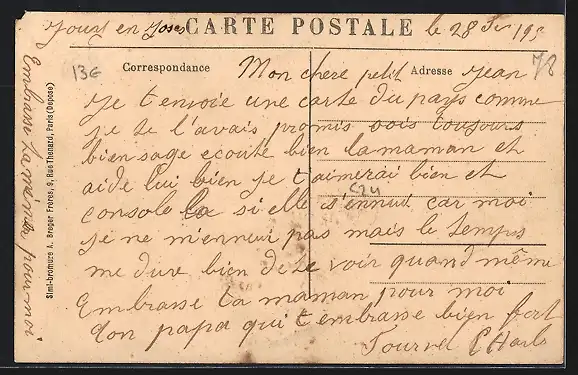 Jouy en Josas CARTE POSTALE le 28
13€
78
Correspondance Adresse
Mon chere petit Jean
Je t envoie une carte du pays comme
je te l'avais promis sois toujours
bien sage ecoute bien la maman et
aide lui bien je t'aimerai bien et
C24
console la si elle s'ennui car moi
je ne m'ennui pas mais le temps
me dure bien de te voir quand même
Embrasse ta maman pour moi
ton papa qui t embrasse bien fort
Tournel
Embrasse pour moi
Simi-bromure A. Breger Frères, 9, Rue Thenard, Paris (Déposé)